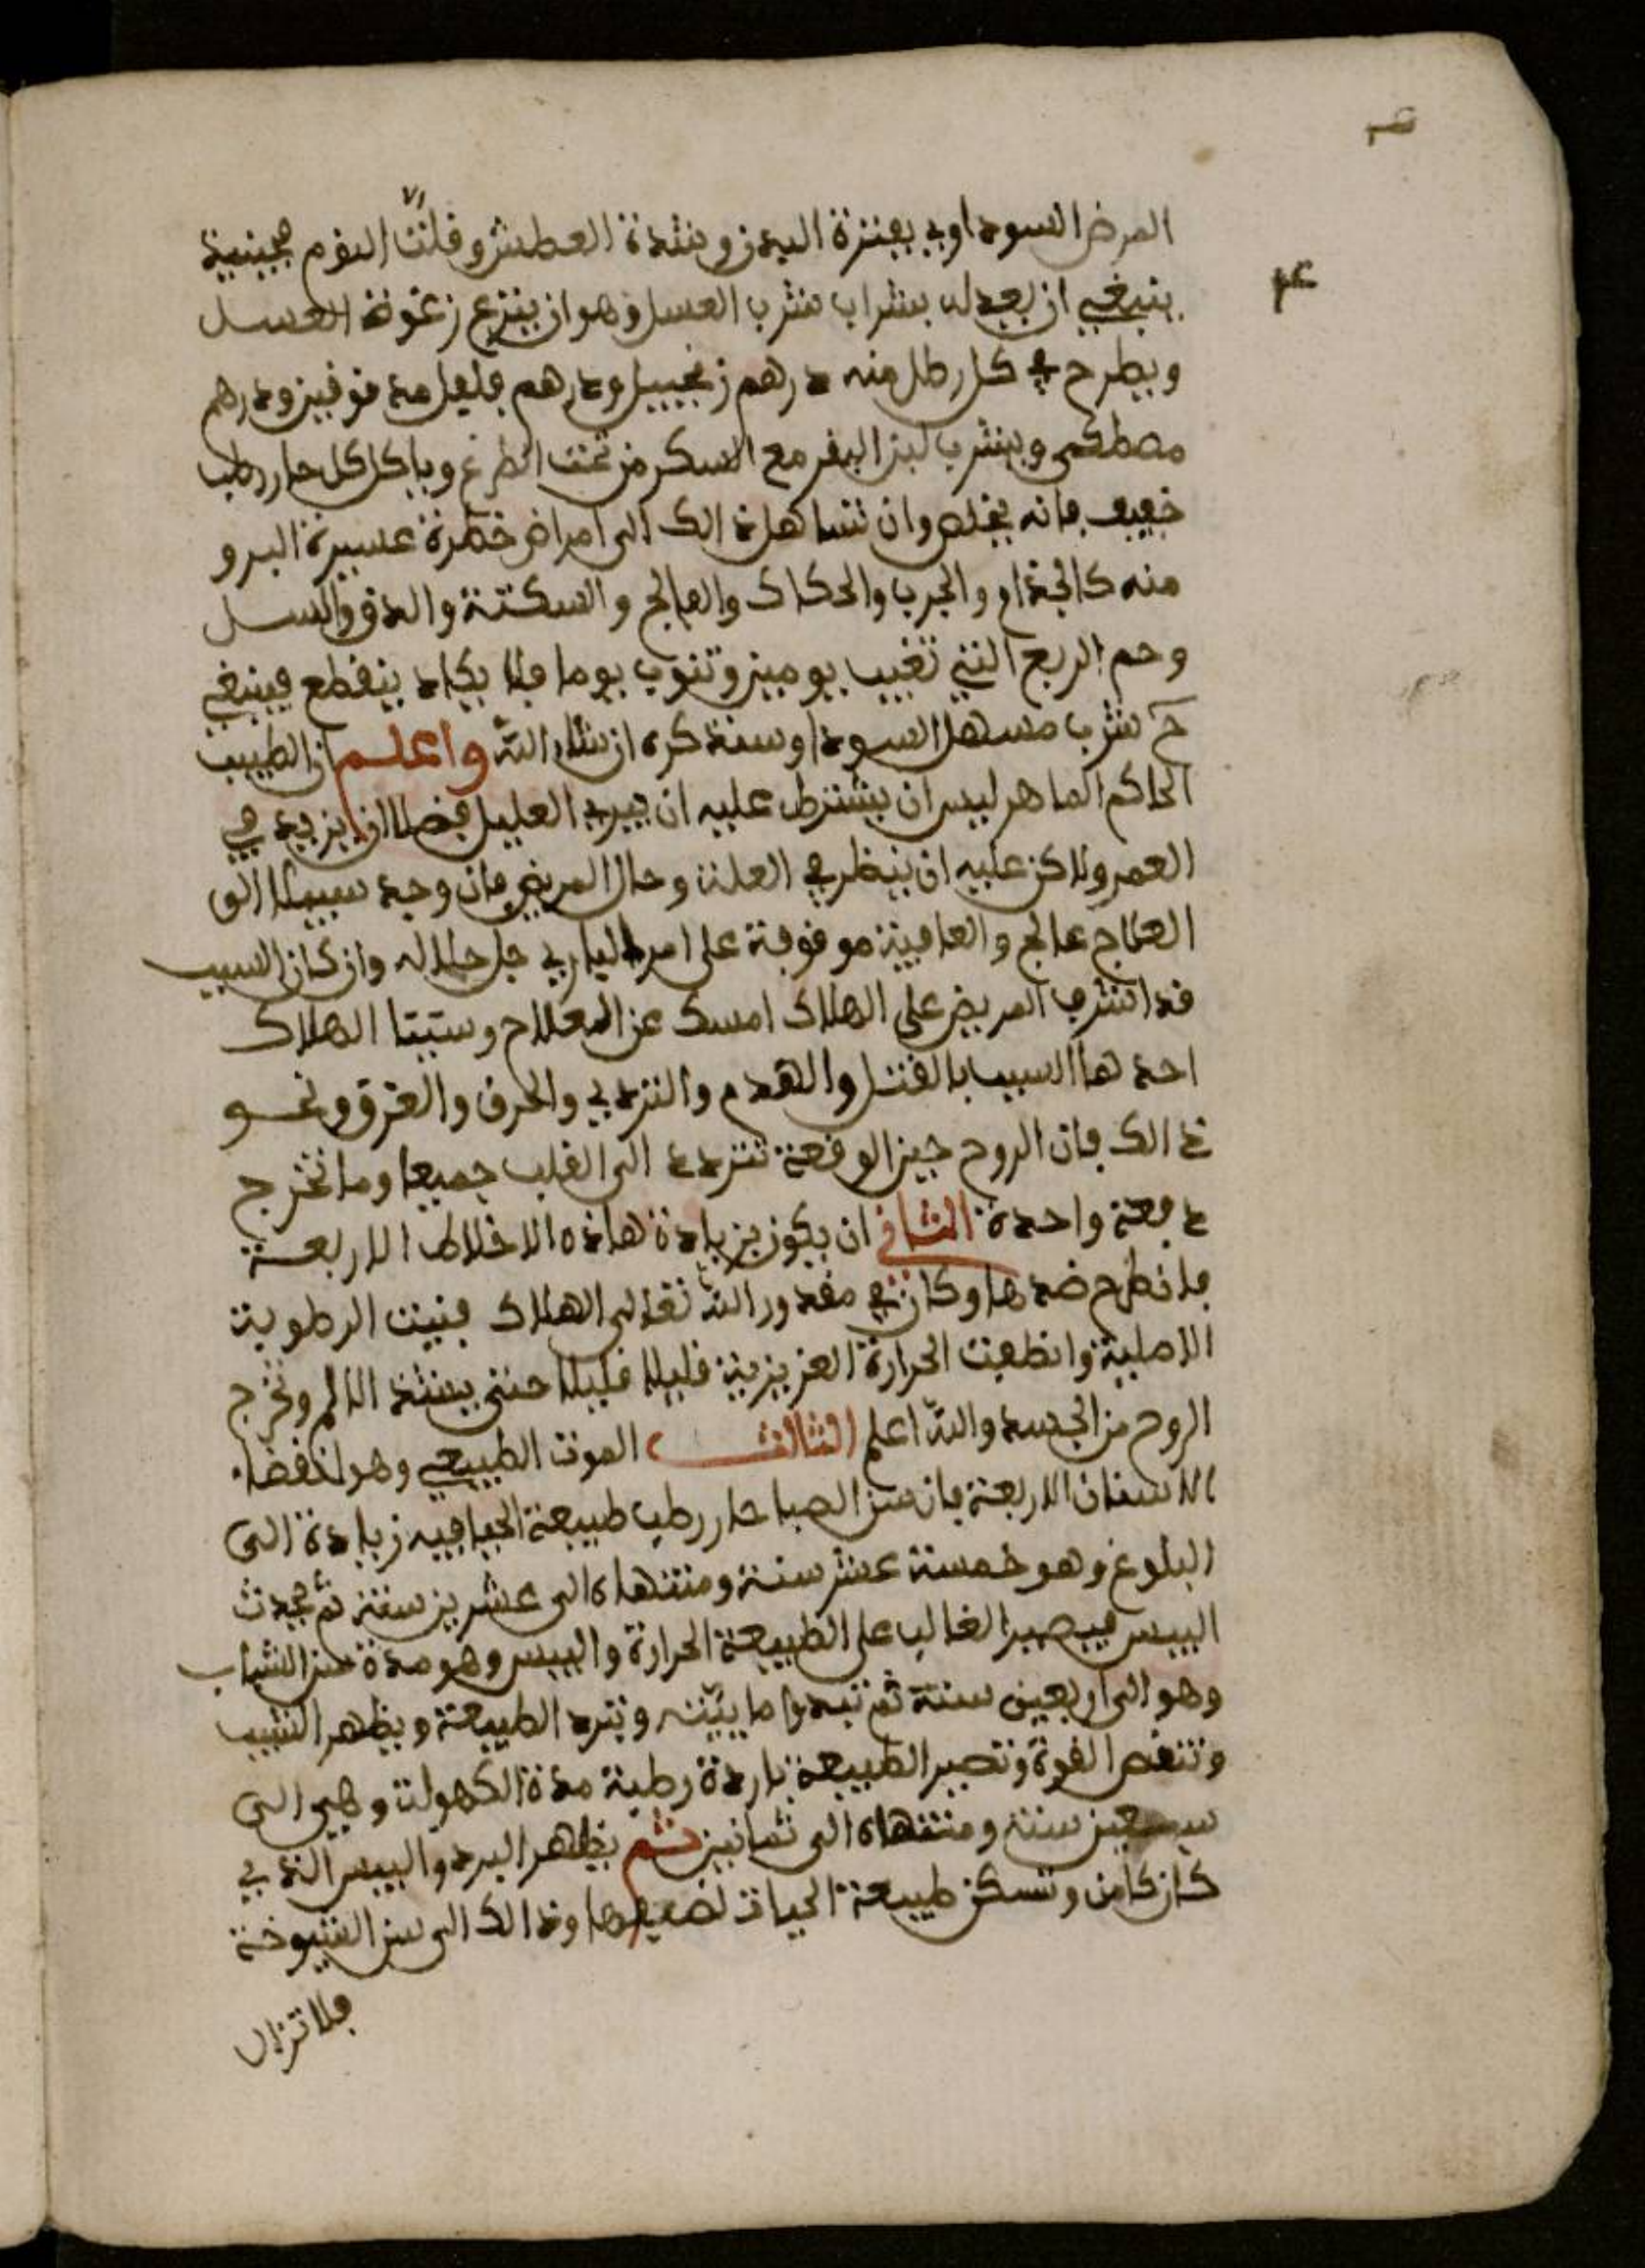 المرض السوداوي بفترة البدن وشدة العطش وقلت النوم فحينيذ
ينبغي ان يعدله بشراب شرب العسل وهو ان ينزع زغوة العسل
ويطرح في كل رطل منه درهم زنجبيل ودرهم فلفل مدقوقين ودرهم
مصطكى ويشرب لبن البقر مع السكر من تحت الضرع وياكل كل حار رطب
خفيف فانه يخلص وان تساهل ذالك الى امراض خطرة عسيرة البرو
منه كالجذام والجرب والحكاك والفالج والسكتة والدق والسل
وحم الربع التي تغيب يومين وتنوب يوما فلا يكاد ينقطع فينبغي
ح شرب مسهل السوداو سنذكره ان شاء الله واعلم ان الطبيب
الحاكم الماهر ليس ان يشترط عليه ان يبري العليل فضلا ان يزيد في
العمر ولاكن عليه ان ينظر في العلة وحال المريض فان وجد سبيلا الى
العلاج عالج والعافية موقوفة على امر الباري جل جلاله وان كان السبب
قد اشرف المريض على الهلاك امسك عن المعلاج وسبتا الهلاك
احدهما السبب بالقتل والهدم والتردي والحرق والغرق ونحو
ذالك فان الروح حين الوقعة تتردد الى القلب جميعا وما تخرج
دفعة واحدة الثاني ان يكون بزيادة هاذه الاخلاط الاربعة
فلا تطرح ضدها وكان في مقدور الله تعالى الهلاك فنيت الرطوبة
الاصلية وانطفت الحرارة الغريزية قليلا قليلا حتى يشتد الالم وتخرج
الروح من الجسد والله اعلم الثالث الموت الطبيعي وهو انقضاء
الاسنان الاربعة فان سن الصبا حار رطب طبيعة الحيا فيه زيادة الى
البلوغ وهو خمسة عشر سنة ومنتهاه الى عشرين سنة ثم يحدث
اليبس فيصير الغالب على الطبيعة الحرارة واليبس وهو مدة سن الشباب
وهو الى اربعين سنة ثم تبدوا مايته وتبرد الطبيعة ويظهر الشيب
وتنقص القوة وتصير الطبيعة باردة رطبة مدة الكهولة وهي الى
سبعين سنة ومنتهاه الى ثمانين ثم يظهر البرد واليبس الذي
كان كامن وتسكن طبيعة الحيات لضعفها وذالك الى سن الشيوخة
فلا تزال